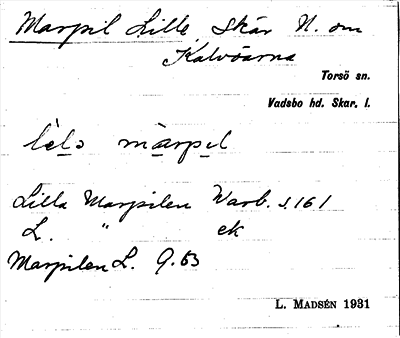 Marpil Lille, Skär N. om
Kalvöarna
Torsö sn.
Vadsbo hd. Skar. l.
lìlə màrpıl
Lilla Marpilen Warb. s. 161
L. " ek
Marpilen L. G. 63
L. MADSÉN 1931